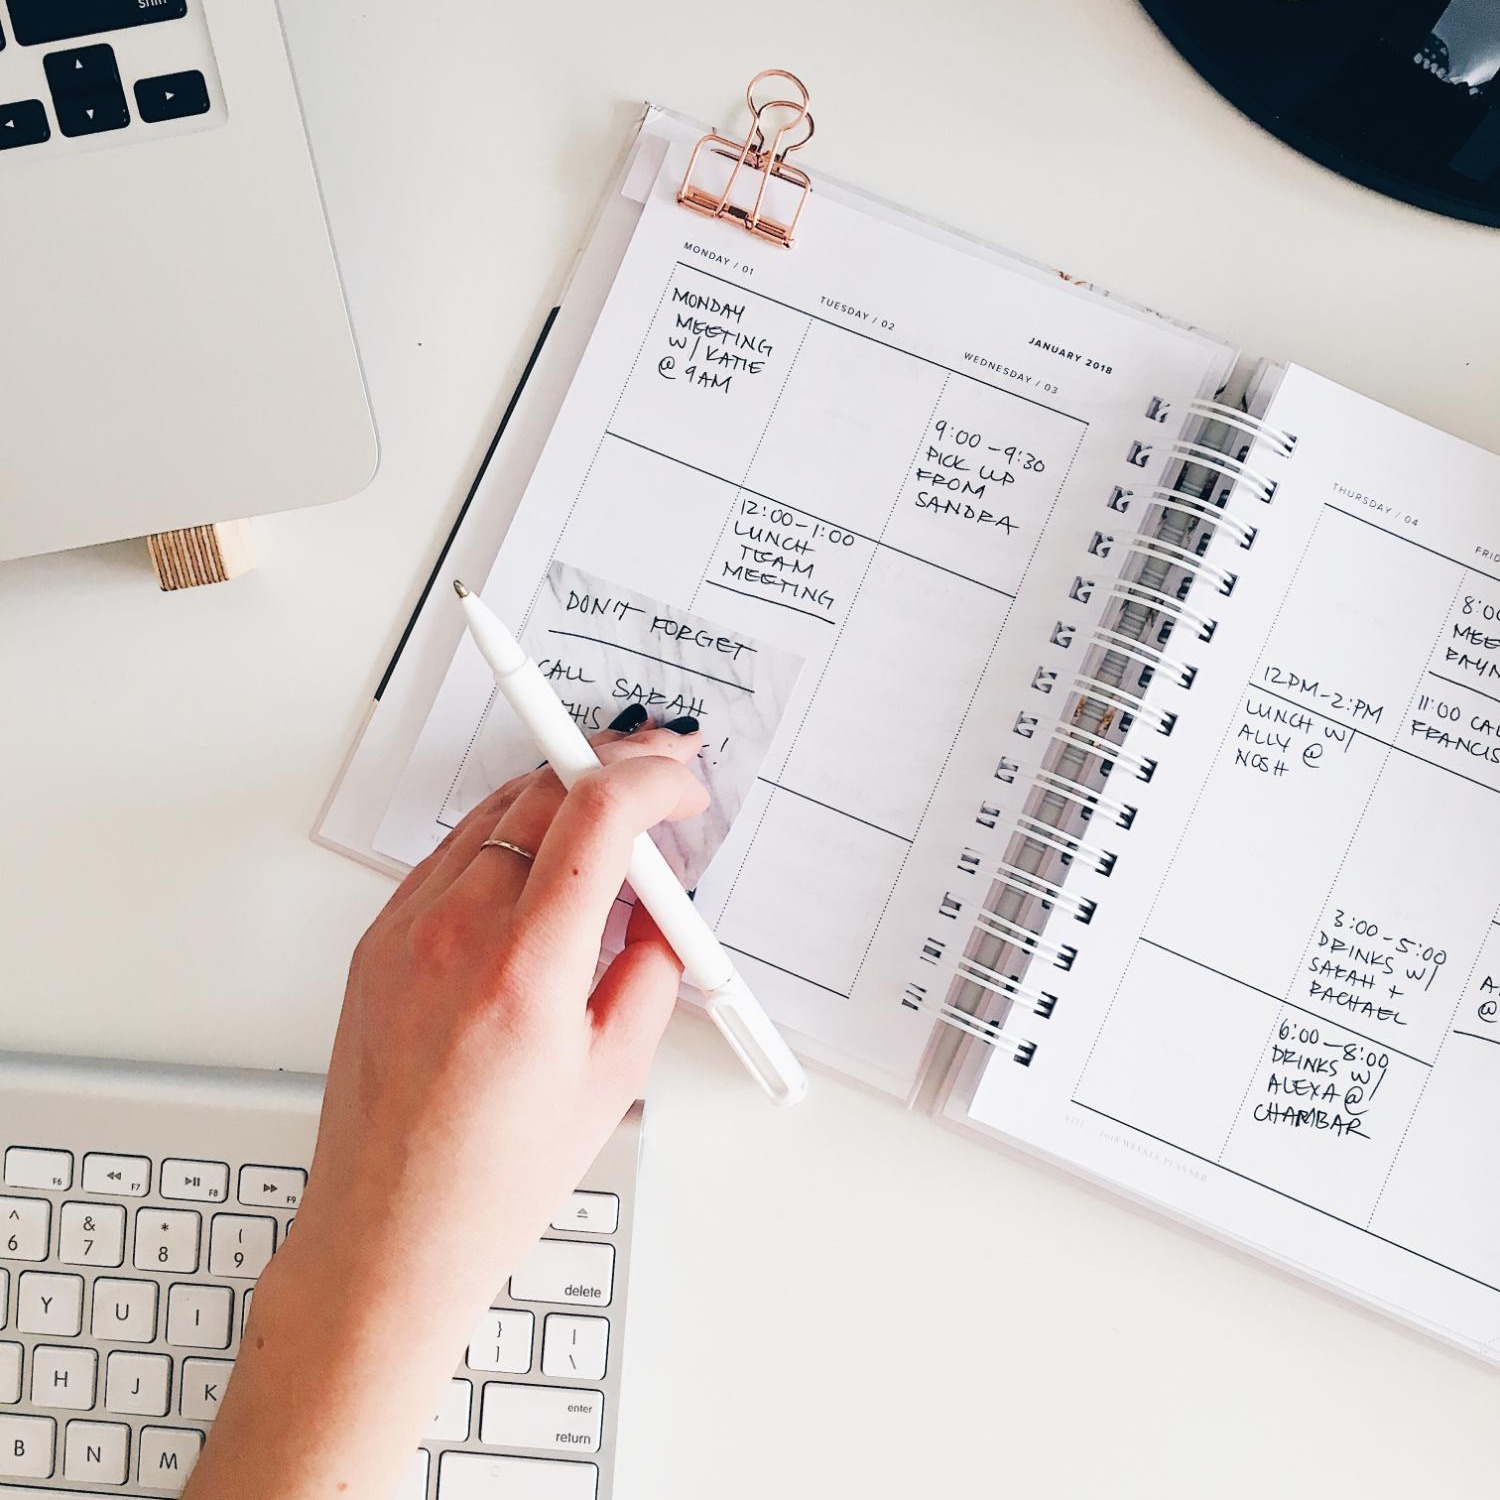 shift
MONDAY / 01
TUESDAY / 02
JANUARY 2018
WEDNESDAY / 03
MONDAY
MEETING
W/ KATIE
@ 9AM
9:00 - 9:30
PICK UP
FROM
SANDRA
12:00-1:00
LUNCH
TEAM
MEETING
DON'T FORGET
CALL SARAH
THIS
!
THURSDAY / 04
12PM-2:PM
LUNCH W/
ALLY @
NOSH
8:00
11:00
FRANCIS
3:00-5:00
DRINKS W/
SARAH +
RACHAEL
6:00-8:00
DRINKS W/
ALEXA @
CHAMBAR
@
2018 WEEKLY PLANNER
F6 F7 F8 F9
^ & * (
6 7 8 9
delete
Y U I } |
] \
H J K enter
return
B N M